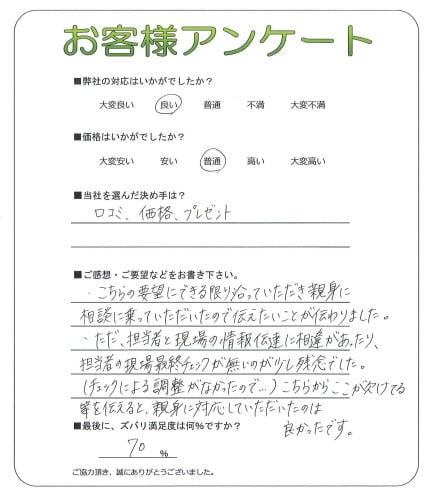 お客様アンケート
■弊社の対応はいかがでしたか？
大変良い 良い 普通 不満 大変不満
■価格はいかがでしたか？
大変安い 安い 普通 高い 大変高い
■当社を選んだ決め手は？
口コミ、価格、プレゼント
■ご感想・ご要望などをお書き下さい。
・こちらの要望にできる限り沿っていただき親身に
相談に乗っていただいたので伝えたいことが伝わりました。
・ただ、担当者と現場の情報伝達に相違があったり、
担当者の現場最終チェックが無いのが少し残念でした。
(チェックによる調整がなかったので…)こちらからここが欠けてる
等を伝えると、親身に対応していただいたのは
良かったです。
■最後に、ズバリ満足度は何％ですか？
70 %
ご協力頂き、誠にありがとうございました。